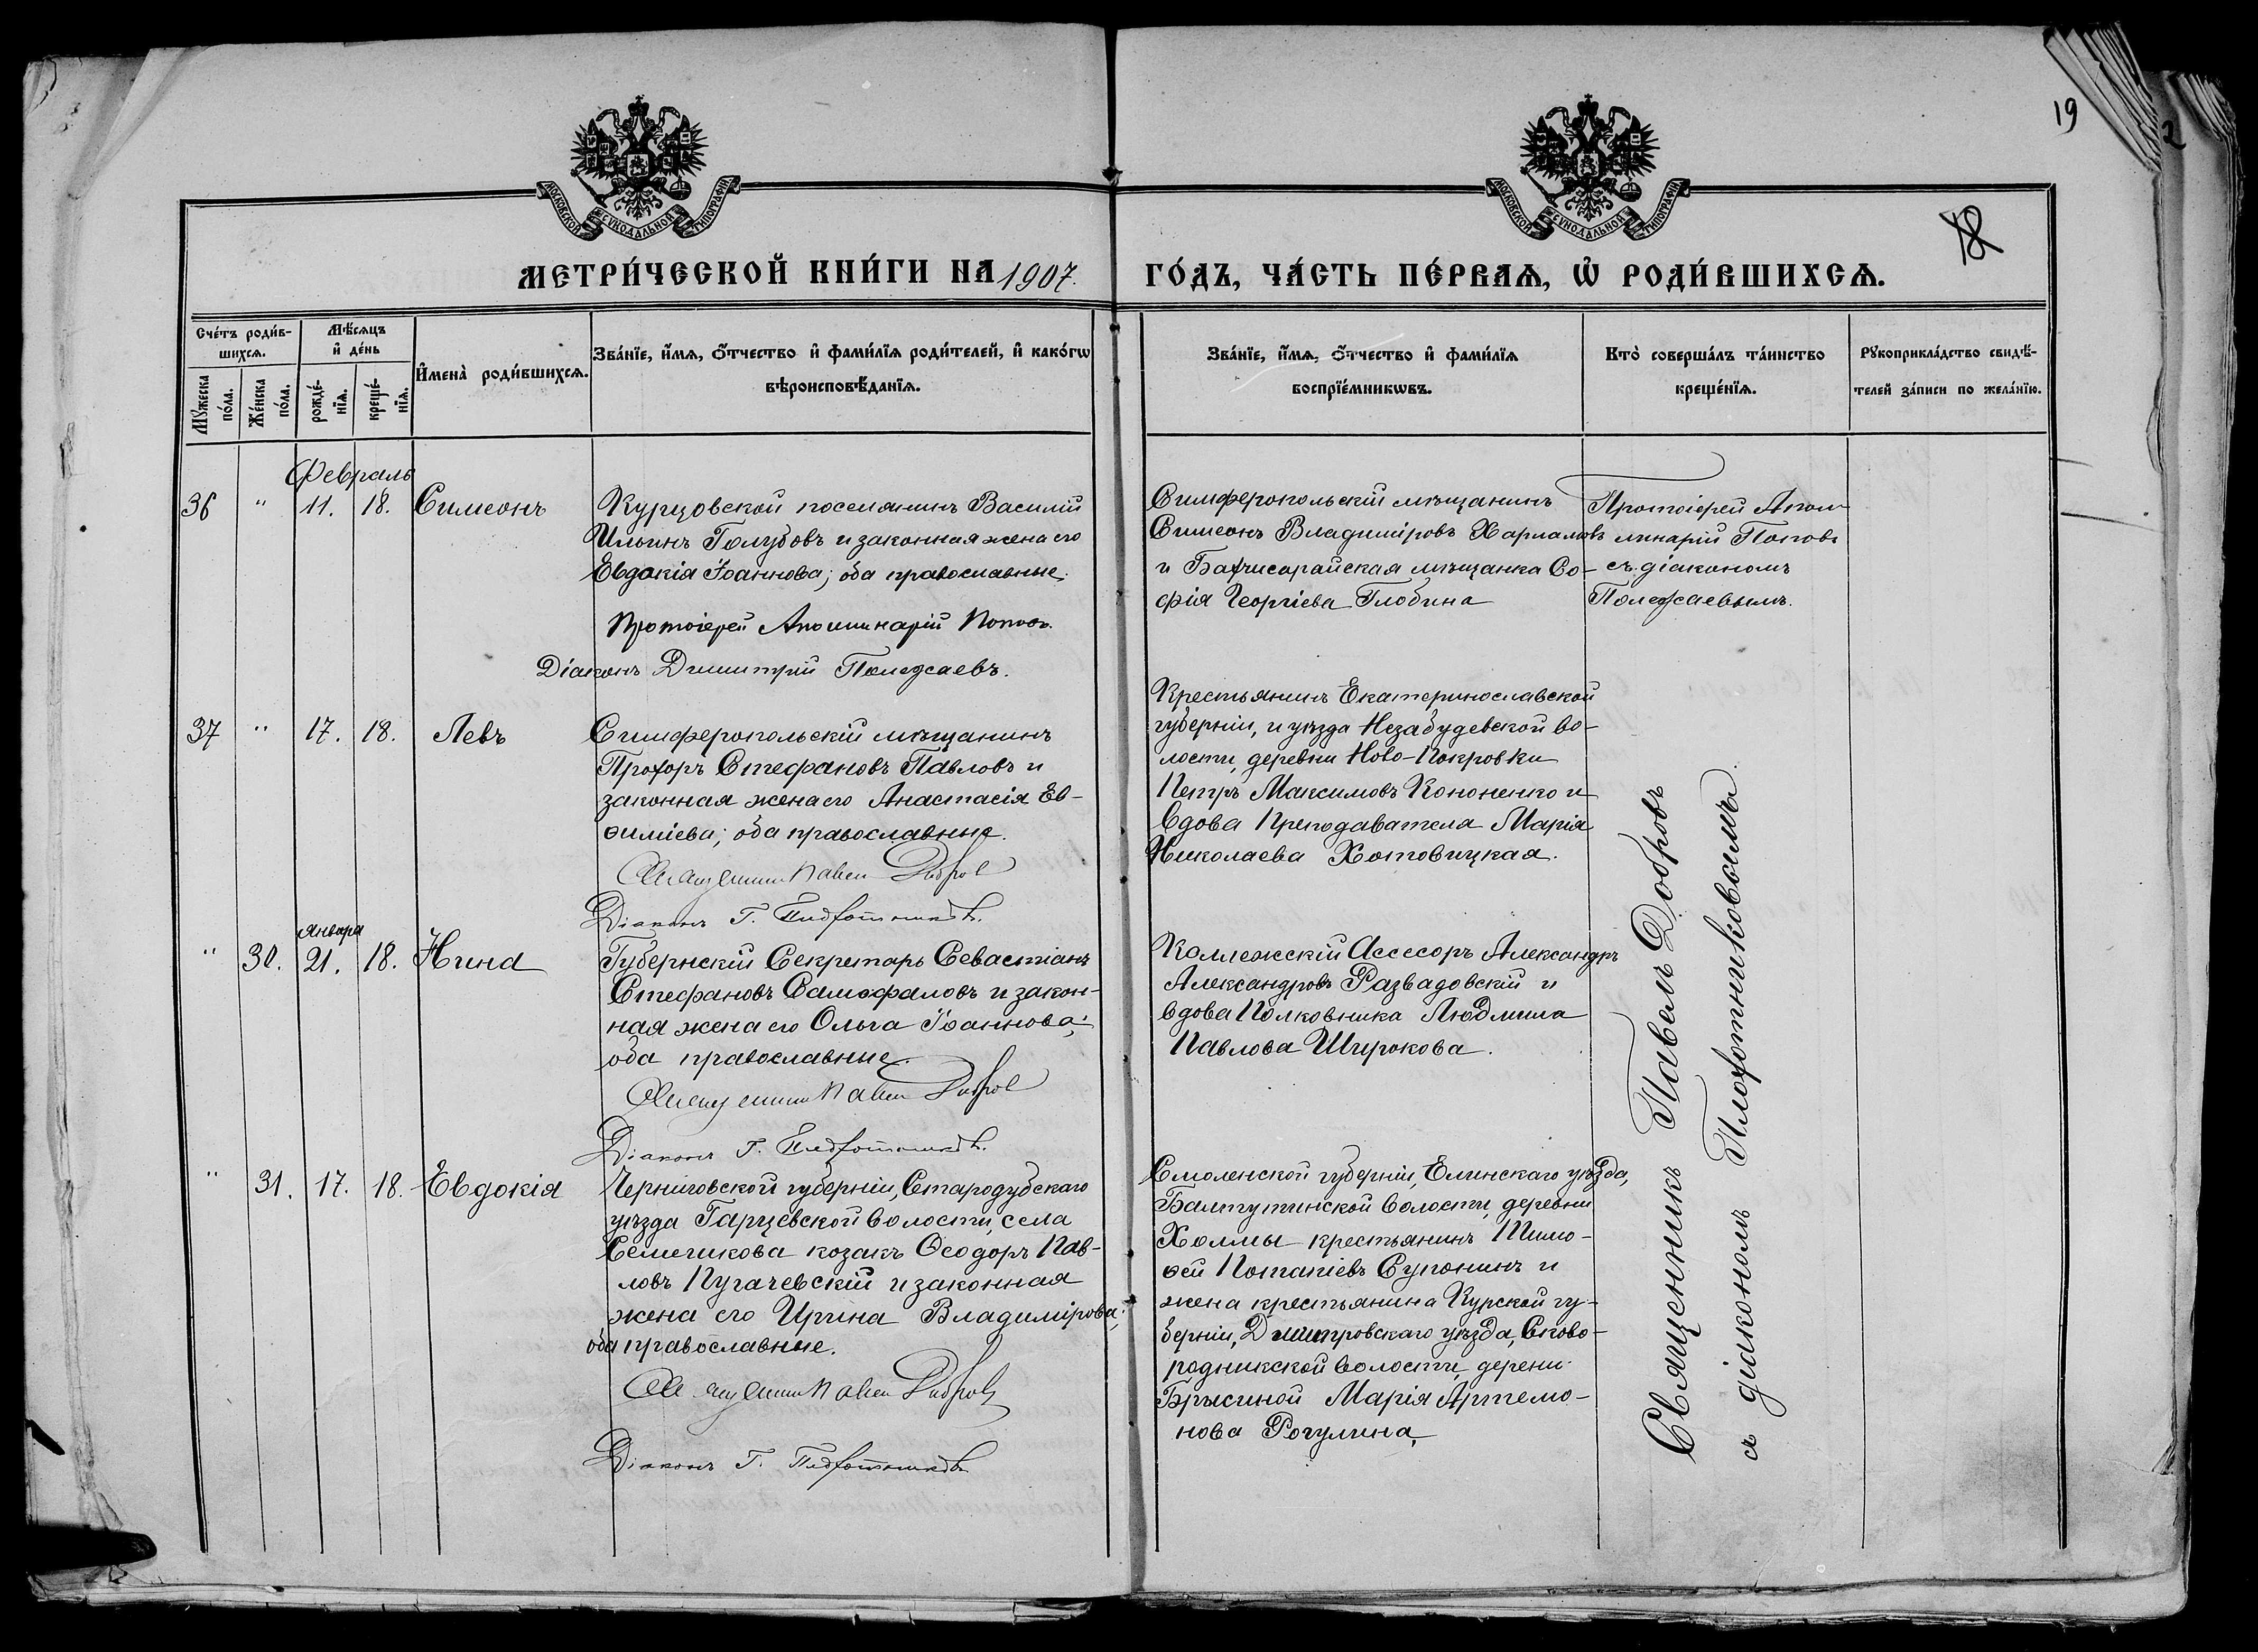 19
2
18
МОСКОВСКОЙ СѴНОДАЛЬНОЙ ТИПОГРАФІИ
МОСКОВСКОЙ СѴНОДАЛЬНОЙ ТИПОГРАФІИ
МЕТРИ́ЧЕСКОЙ КНИ́ГИ НА 1907. ГО́ДЪ, ЧА́СТЬ ПЕ́РВАѦ, Ѡ҆ РОДИ́ВШИХСѦ.
Сче́тъ роди́в-
шихсѧ.
Мꙋ́жеска
по́ла.
Же́нска
по́ла.
Мѣ́сѧцъ
и҆ де́нь
рожде́-
нїѧ.
креще́-
нїѧ.
И҆мена̀ роди́вшихсѧ.
Зва́нїе, и҆́мѧ, ѻ҆́тчество и҆ фами́лїѧ роди́телей, и҆ како́гѡ
вѣроисповѣ́данїѧ.
Зва́нїе, и҆́мѧ, ѻ҆́тчество и҆ фами́лїѧ
воспрїе́мникѡвъ.
Кто̀ соверша́лъ та́инство
креще́нїѧ.
Рꙋкоприкла́дство свидѣ́-
телей за́писи по жела́нїю.
Февраль
36 " 11. 18. Симеонъ
Курцовской поселянинъ Василій
Ильинъ Голубовъ и законная жена его
Евдокія Іоаннова; оба православные.
Протоіерей Аполлинарій Поповъ.
Діаконъ Димитрій Полежаевъ.
Симферопольскій мѣщанинъ
Симеонъ Владиміровъ Харламовъ
и Бахчисарайская мѣщанка Со-
фія Георгіева Глобина
Протоіерей Апол-
линарій Поповъ
съ діакономъ
Полежаевымъ.
37 " 17. 18. Левъ
Симферопольскій мѣщанинъ
Прохоръ Стефановъ Павловъ и
законная жена его Анастасія Ев-
ѳиміева; оба православные.
Священникъ Павелъ Добровъ
Діаконъ Г. Плохотниковъ.
Крестьянинъ Екатеринославской
губерніи, и уѣзда Незабудевской во-
лости, деревни Ново-Покровки
Петръ Максимовъ Кононенко и
вдова Преподавателя Марія
Николаева Хотовицкая.
января
" 30. 21. 18. Нина
Губернскій Секретарь Севастіанъ
Стефановъ Самофаловъ и закон-
ная жена его Ольга Іоаннова;
оба православные.
Священникъ Павелъ Добровъ
Діаконъ Г. Плохотниковъ.
Коллежскій Ассесоръ Александръ
Александровъ Развадовскій и
вдова Полковника Людмила
Павлова Широкова.
" 31. 17. 18. Евдокія
Черниговской губерніи, Стародубскаго
уѣзда Гарцевской волости, села
Семешкова козакъ Ѳеодоръ Пав-
ловъ Пугачевскій и законная
жена его Ирина Владимірова;
оба православные.
Священникъ Павелъ Добровъ
Діаконъ Г. Плохотниковъ
Смоленской губерніи, Елинскаго уѣзда,
Балтутинской волости, деревни
Холмы крестьянинъ Тимо-
ѳей Потапіевъ Супонинъ и
жена крестьянина Курской гу-
берніи, Дмитровскаго уѣзда, Сково-
родникской волости, дерени
Брысиной Марія Артемо-
нова Рогулина,
Священникъ Павелъ Добровъ
съ діакономъ Плохотниковымъ.